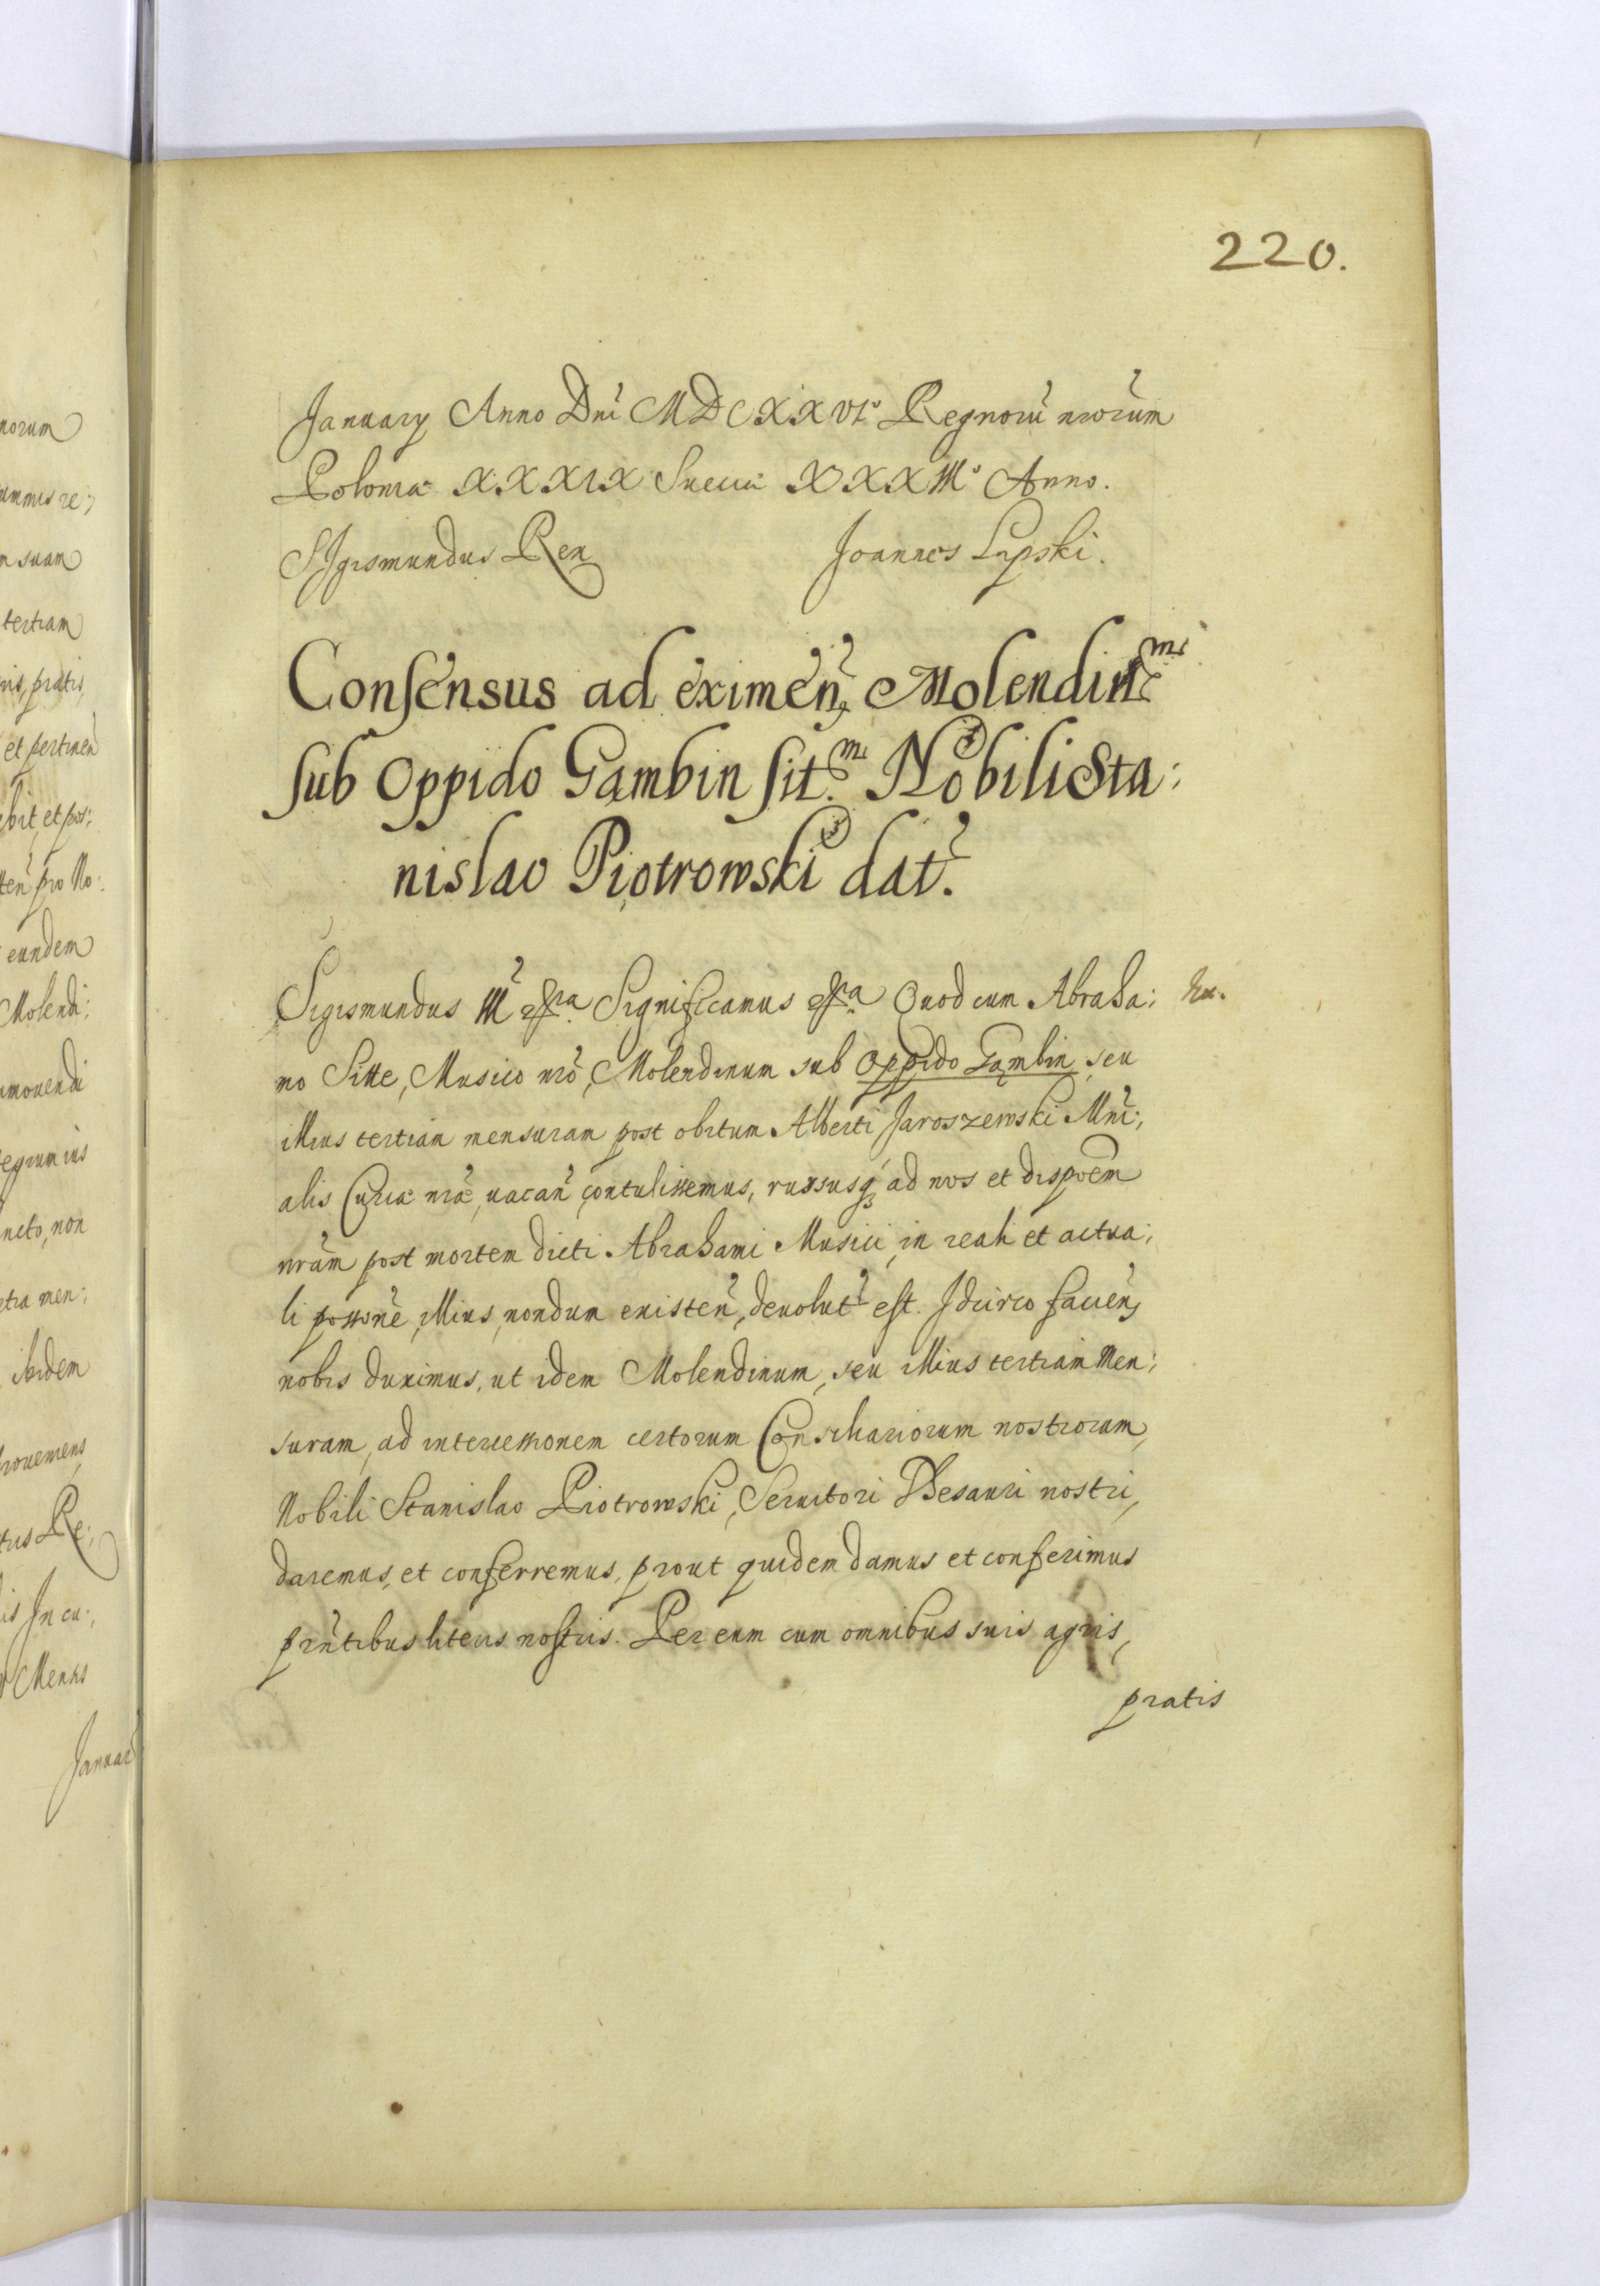 220.
January Anno Dni MDCXXVI° Regnorū nrorum
Poloniæ XXXIX Sueciæ XXXIII° Anno.
Sigismundus Rex Joannes Lipski.
Consensus ad eximen Molendinm
sub Oppido Gambin sit.m Nobili Sta:
nislao Piotrowski dat.
Sigismundus III Significamus Quod cum Abraha:
mo Sitte, Musico nro, Molendinum sub Oppido Gąmbin seu
illius tertiam mensuram post obitum Alberti Jaroszewski Mni:
alis Curiæ nræ, uacan contulissemus, rursusq ad nos et disposem
nram post mortem dicti Abrahami Musici, in reali et actua:
li possone, illius, nondum existen, deuolut est. Idcirco facien
nobis duximus, ut idem Molendinum, seu illius tertiam Men:
suram, ad intercessionem certorum Consiliariorum nostrorum,
Nobili Stanislao Piotrowski, Seruitori Thesauri nostri,
daremus, et conferremus, prout quidem damus et conferimus
prntibus literis nostris. Per eum cum omnibus suis agris,
pratis
norum
m suam
tertiam
pratis
et pertinen
ebit et pos:
ten pro No:
eundem
Molendi:
amouendi
egium ius
ncto, non
etia men:
ibidem
rouemens
tus Re:
is In cu:
Menss
Januar